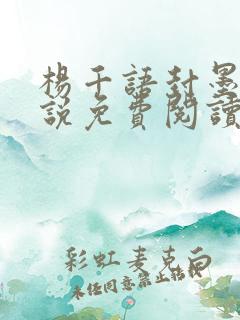 楊千語封墨
說免費閱讀
彩虹麦克白
未经同意禁止转载